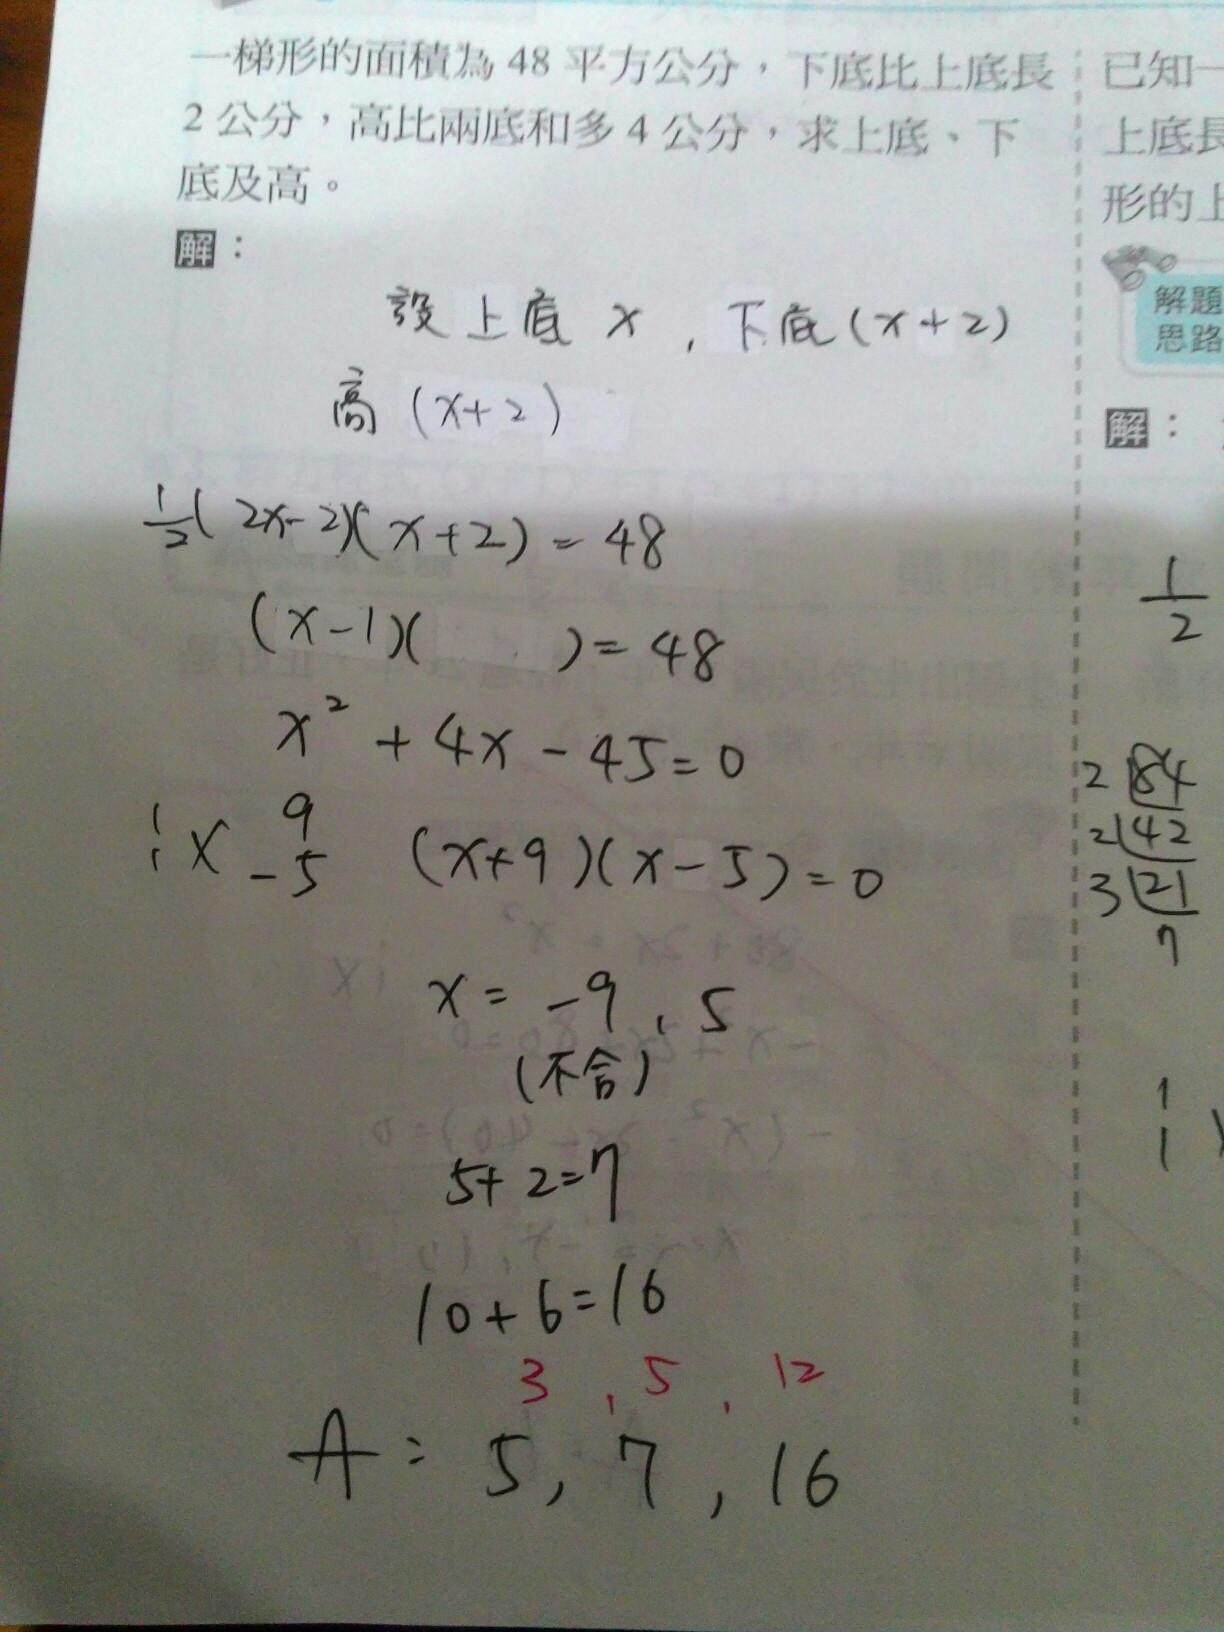 一梯形的面積為 48 平方公分，下底比上底長
2 公分，高比兩底和多 4 公分，求上底、下
底及高。
解：
設上底 x , 下底 (x+2)
高 (x+2)
1/2( 2x-2)(x+2) = 48
(x-1)( ) = 48
x² + 4x - 45 = 0
1 9
1 X -5 (x+9)(x-5) = 0
x = -9 , 5
(不合)
5+2=7
10+6=16
3 , 5 , 12
A: 5, 7, 16
已知一
上底長
形的上
解題
思路
解：
1/2
2 84
2 42
3 21
7
1
1